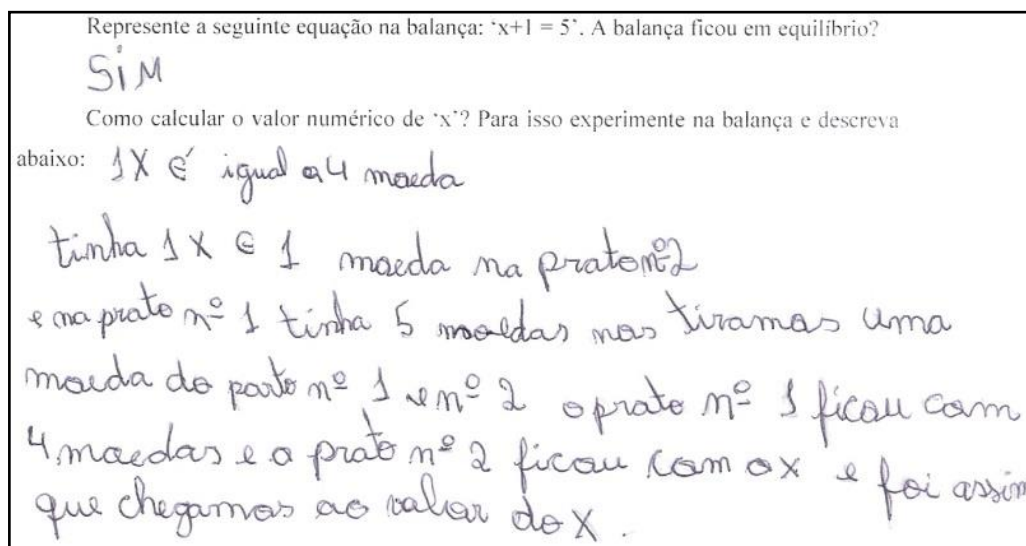 Represente a seguinte equação na balança: ‘x+1 = 5’. A balança ficou em equilíbrio?
SiM
Como calcular o valor numérico de ‘x’? Para isso experimente na balança e descreva
abaixo: 1X é igual a 4 moeda
tinha 1 X e 1 moeda na prato nº2
e na prato nº 1 tinha 5 moeldas nos tiramos uma
moeda do parto nº 1 e nº 2 o prato nº 1 ficou com
4 moedas e o prato nº 2 ficou com o x e foi assim
que chegamos ao valor do X.